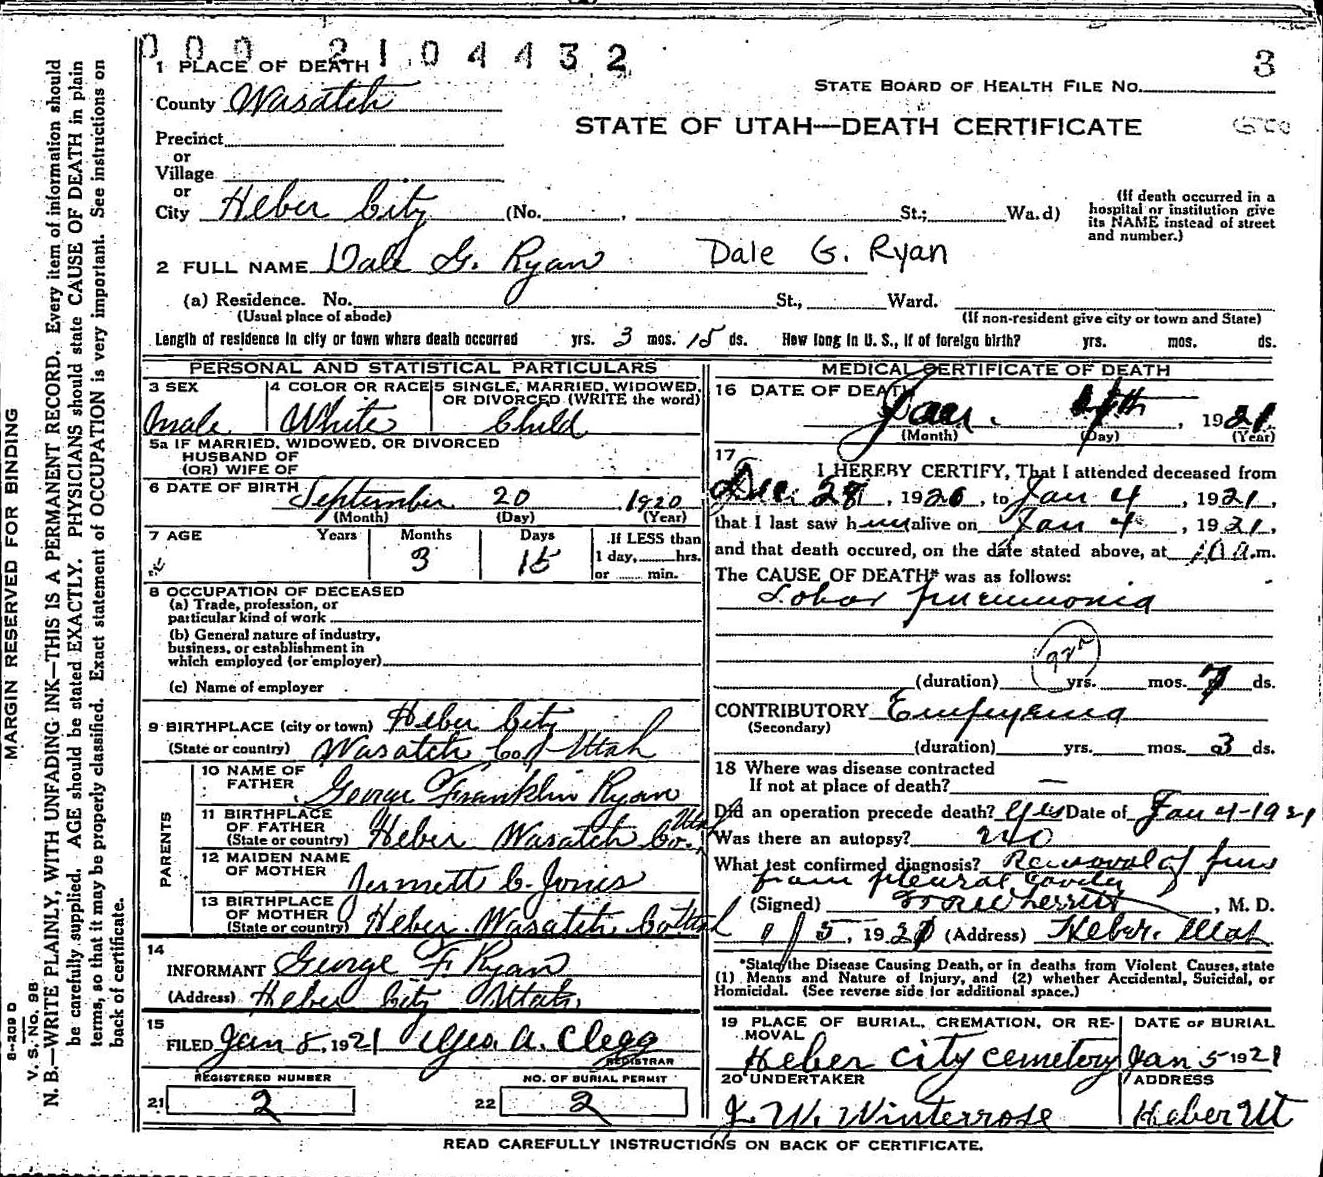 0002104432
3
1 PLACE OF DEATH
STATE BOARD OF HEALTH FILE NO.
County Wasatch
STATE OF UTAH—DEATH CERTIFICATE
Precinct
or
Village
or
City Heber City (No. , St.; Wa.d)
(If death occurred in a hospital or institution give its NAME instead of street and number.)
2 FULL NAME Dale G. Ryan Dale G. Ryan
(a) Residence. No. St., Ward.
(Usual place of abode) (If non-resident give city or town and State)
Length of residence in city or town where death occurred yrs. 3 mos. 15 ds. How long in U. S., if of foreign birth? yrs. mos. ds.
PERSONAL AND STATISTICAL PARTICULARS
3 SEX Male
4 COLOR OR RACE White
5 SINGLE, MARRIED, WIDOWED, OR DIVORCED (WRITE the word) Child
5a IF MARRIED, WIDOWED, OR DIVORCED
HUSBAND OF
(OR) WIFE OF
6 DATE OF BIRTH September 20 1920
(Month) (Day) (Year)
7 AGE Years Months Days If LESS than
3 15 1 day, hrs.
or min.
8 OCCUPATION OF DECEASED
(a) Trade, profession, or
particular kind of work
(b) General nature of industry,
business, or establishment in
which employed (or employer)
(c) Name of employer
9 BIRTHPLACE (city or town) Heber City
(State or country) Wasatch Co Utah
PARENTS
10 NAME OF FATHER George Franklin Ryan
11 BIRTHPLACE OF FATHER (State or country) Heber Wasatch Co. Utah
12 MAIDEN NAME OF MOTHER Jennett C. Jones
13 BIRTHPLACE OF MOTHER (State or country) Heber Wasatch Co Utah
14
INFORMANT George F Ryan
(Address) Heber City Utah
15
FILED Jan 5, 1921 Geo. A. Clegg
REGISTRAR
REGISTERED NUMBER NO. OF BURIAL PERMIT
21 2 22 2
MEDICAL CERTIFICATE OF DEATH
16 DATE OF DEATH Jan. 4th, 1921
(Month) (Day) (Year)
17
I HEREBY CERTIFY, That I attended deceased from
Dec. 28, 1920, to Jan 4, 1921,
that I last saw him alive on Jan 4, 1921,
and that death occured, on the date stated above, at 10 a.m.
The CAUSE OF DEATH* was as follows:
Lobar pneumonia
(duration) yrs. mos. 7 ds.
CONTRIBUTORY Empyema
(Secondary)
(duration) yrs. mos. 3 ds.
18 Where was disease contracted
If not at place of death? —
Did an operation precede death? Yes Date of Jan 4-1921
Was there an autopsy? no
What test confirmed diagnosis? Removal of pus
from pleural Cavity
(Signed) , M. D.
1/5, 1921 (Address) Heber. Utah
*State the Disease Causing Death, or in deaths from Violent Causes, state
(1) Means and Nature of Injury, and (2) whether Accidental, Suicidal, or
Homicidal. (See reverse side for additional space.)
19 PLACE OF BURIAL, CREMATION, OR REMOVAL
Heber City Cemetery
DATE OF BURIAL
Jan 5 1921
20 UNDERTAKER
J. W. Winterrose
ADDRESS
Heber Ut
READ CAREFULLY INSTRUCTIONS ON BACK OF CERTIFICATE.
MARGIN RESERVED FOR BINDING
S-209 D
V. S. No. 9B
N. B.—WRITE PLAINLY, WITH UNFADING INK—THIS IS A PERMANENT RECORD. Every item of information should
be carefully supplied. AGE should be stated EXACTLY. PHYSICIANS should state CAUSE OF DEATH in plain
terms, so that it may be properly classified. Exact statement of OCCUPATION is very important. See instructions on
back of certificate.